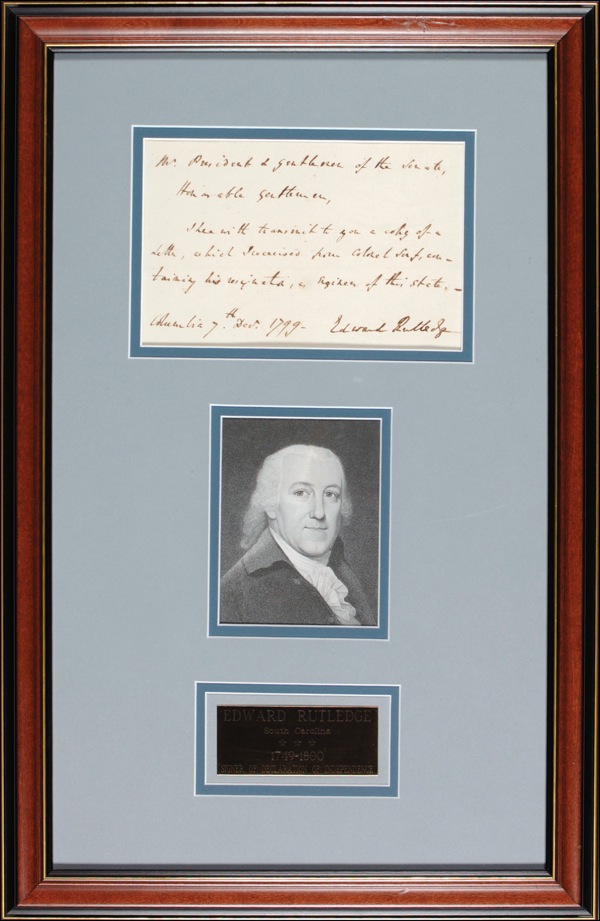 Mr. President & gentlemen of the Senate,
Honorable gentlemen,
I herewith transmit to you a copy of a
Letter, which I received from Colonel Senf, con-
taining his resignation, as Engineer of this State. -
Columbia 7th Decr. 1799 - Edward Rutledge
EDWARD RUTLEDGE
South Carolina
☆ ☆ ☆
1749-1800
SIGNER OF DECLARATION OF INDEPENDENCE